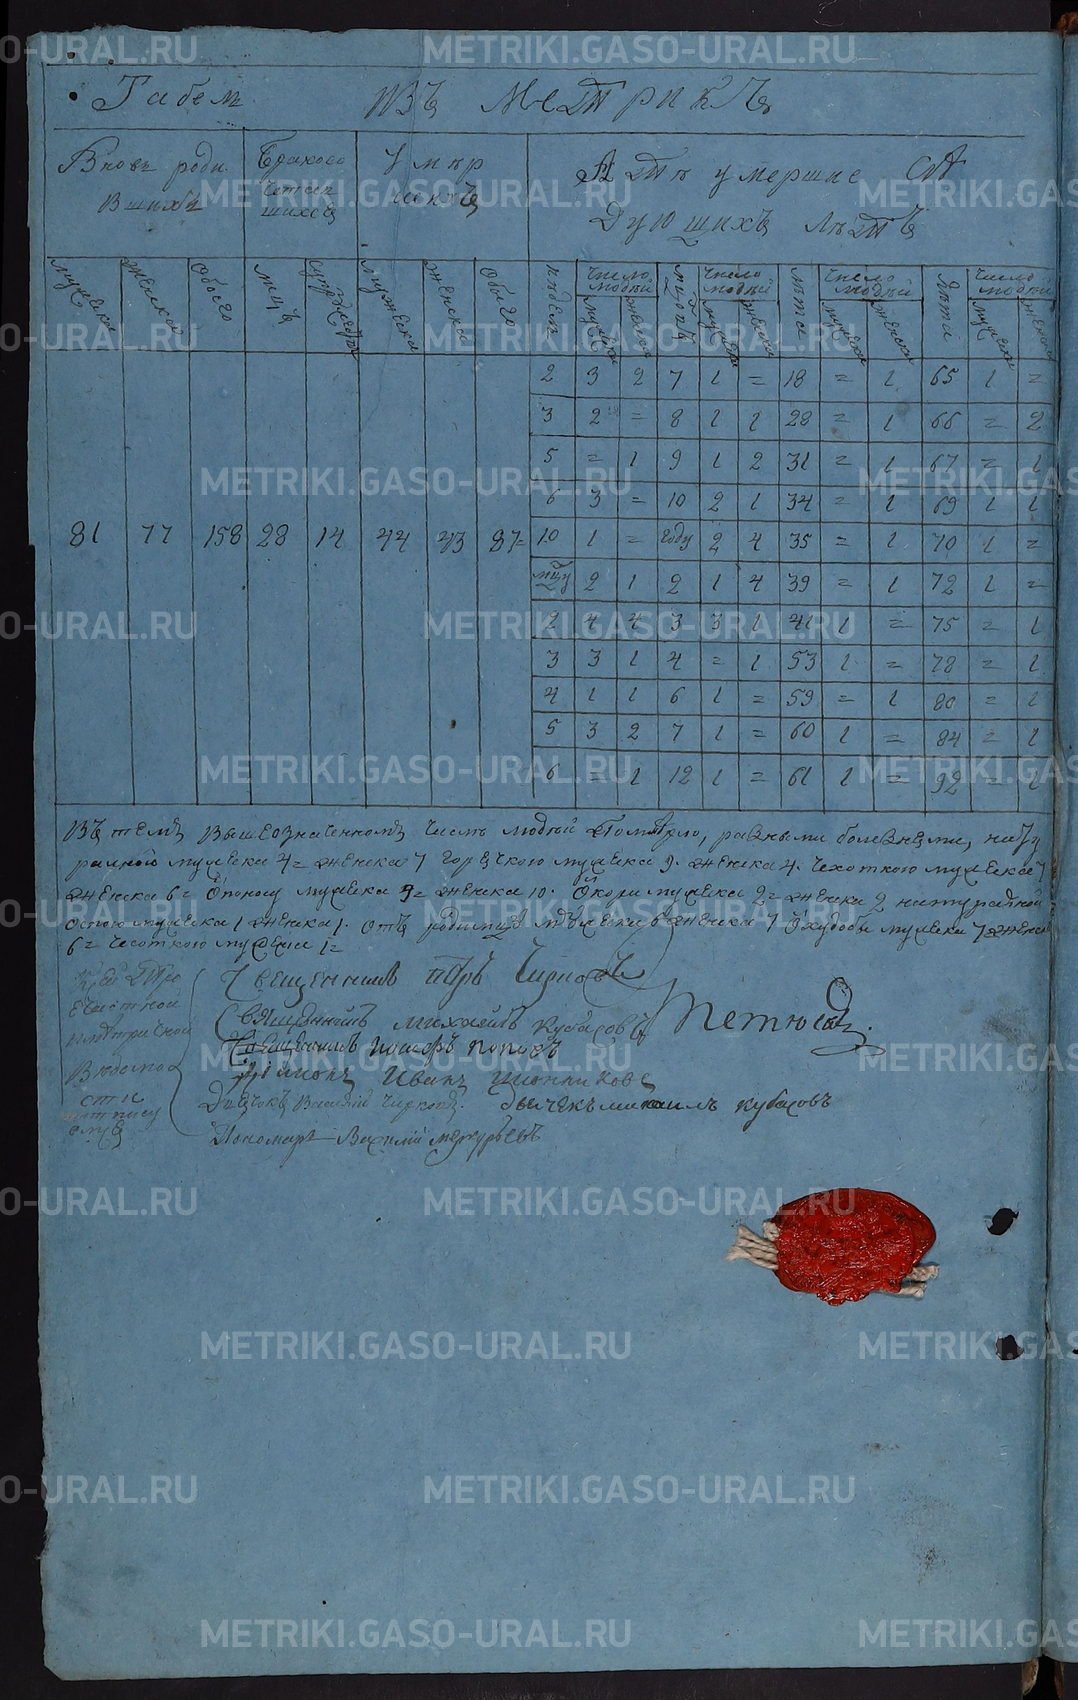 Табель изъ метрикъ
Вновь роди
вшихъ
Бракосо
четав
шихся
Умер
шихъ
А те умершие слѣ
дующихъ лѣтъ
мужеска женска обоего
лицъ супружествъ
мужеска женска обоего
недели число людей мужеска женска
число людей мужеска женска
лѣта число людей мужеска женска
лѣта число людей мужеска женска
2 3 2 7 1 = 18 = 1 65 1 =
3 2 = 8 1 1 28 = 1 66 = 2
5 = 1 9 1 2 31 = 1 67 = 1
6 3 = 10 2 1 34 = 1 69 1 1
81 77 158 28 14 44 43 87= 10 1 = году 2 4 35 = 1 70 1 =
мцу 2 1 2 1 4 39 = 1 72 1 =
2 4 4 3 3 1 41 1 = 75 = 1
3 3 1 4 = 1 53 1 = 78 = 1
4 1 1 6 1 = 59 = 1 80 = 1
5 3 2 7 1 = 60 1 = 84 = 1
6 = 1 12 1 = 61 1 = 92 = 1
Въ темъ вышеозначенномъ числѣ людей померло, разными болезнеми,
мужеска 4= женска 7 горячкою мужеска 9. женска 4. чехоткою мужеска 7
женска 6= поносу мужеска 9= женска 10. кори мужеска 2= женска 2 натуралной
оспою мужеска 1 женска 1. отъ родимца мужеска 6 женска 7 худобы мужеска 7 женска
6= чесоткою мужеска 1=
К сей
метрической
ведомо
сти
Священникъ Петръ Чирковъ
Священникъ Михаилъ Кубасовъ
Священникъ Иосифъ Поповъ
Диаконъ Иванъ
Дьячокъ Василий Чирковъ. дьячекъ михаилъ кубасовъ
Пономарь Василий меркурьевъ
METRIKI.GASO-URAL.RU